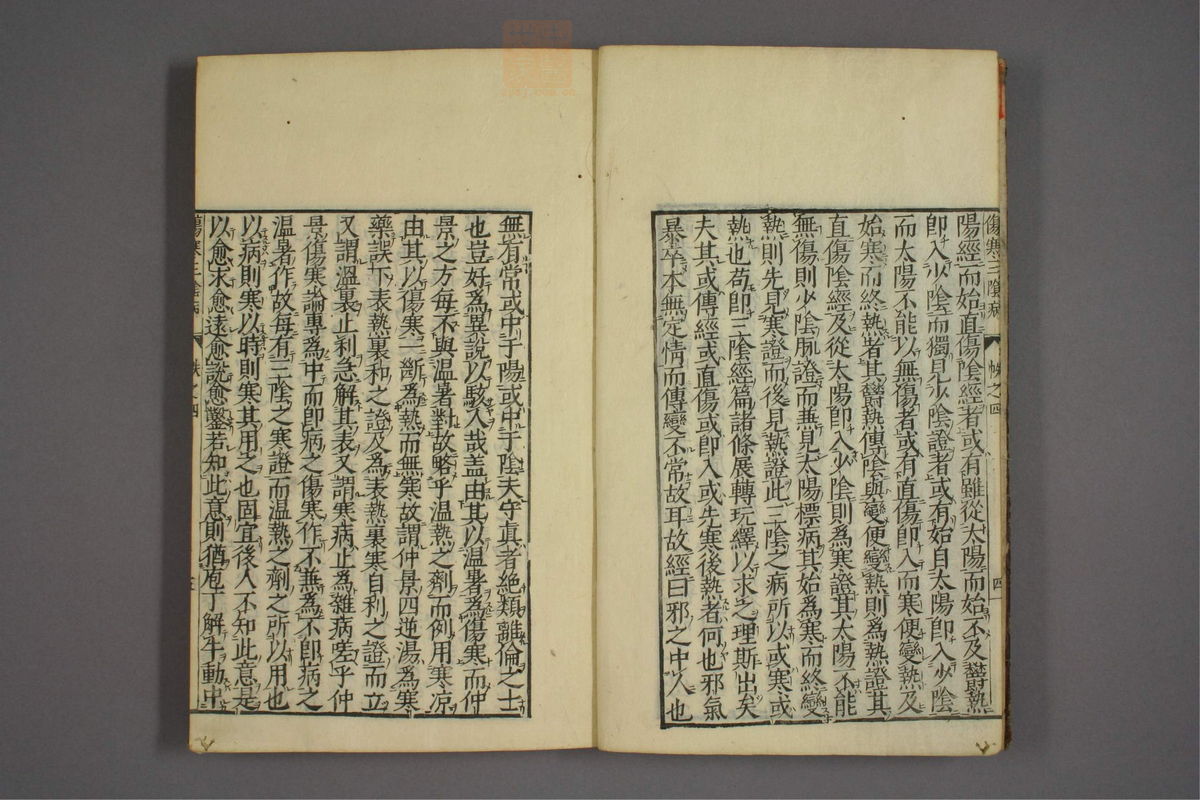 傷寒三陰病 帙之四 四
陽經而始直傷陰經者或有雖從太陽而始不及鬱熱
卽入少陰而獨見少陰證者或有始自太陽卽入少陰
而太陽不能以無傷者或有直傷卽入而寒便變熱及
始寒而終熱者其鬱熱傳陰與變便變熱則爲熱證其
直傷陰經及從太陽卽入少陰則爲寒證其太陽不能
無傷則少陰脈證而兼見太陽標病其始爲寒而終變
熱則先見寒證而後見熱證此三陰之病所以或寒或
熱也苟卽三陰經篇諸條展轉玩繹以求之理斯出矣
夫其或傳經或直傷或卽入或先寒後熱者何也邪氣
暴卒本無定情而傳變不常故耳故經曰邪之中人也
無有常或中于陽或中于陰夫守眞者絶類離倫之士
也豈好爲異說以駭人哉盖由其以温暑爲傷寒而仲
景之方每不與温暑對故略乎温熱之劑而例用寒凉
由其以傷寒一斷爲熱而無寒故謂仲景四逆湯爲寒
藥誤下表熱裏和之證及爲表熱裏寒自利之證而立
又謂温裏止利急解其表又謂寒病止爲雜病嗟乎仲
景傷寒論專爲中而卽病之傷寒作不兼爲不卽病之
温暑作故每有三陰之寒證而温熱之劑之所以用也
以病則寒以時則寒其用之也固宜後人不知此意是
以愈求愈遠愈說愈鑿若知此意則猶庖丁解牛動中
傷寒三陰病 帙之四